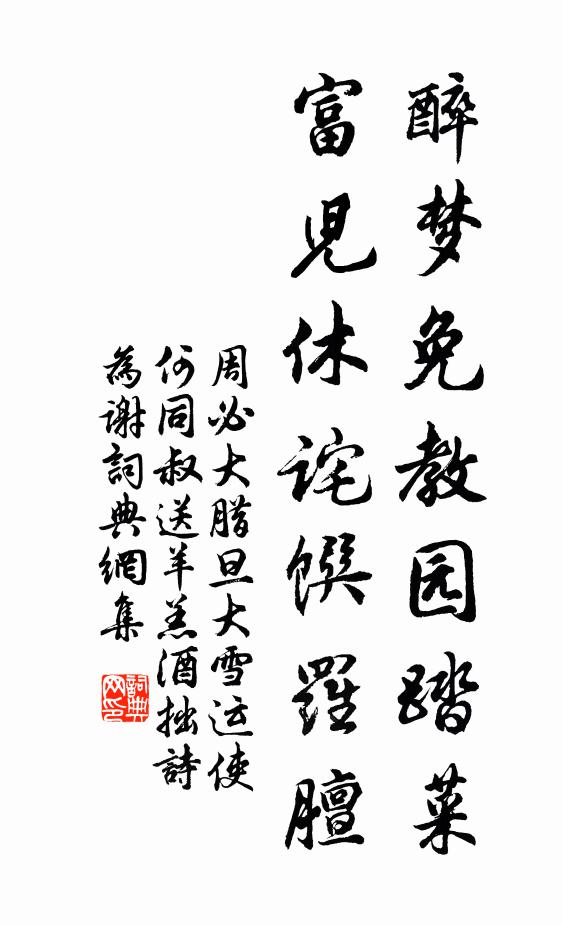 醉梦免教园踏菜
富児休诧馔羅膻
周必大腊旦大雪运使
何同叔送羊羔酒拙詩
為谢詞典網集
詞典网印